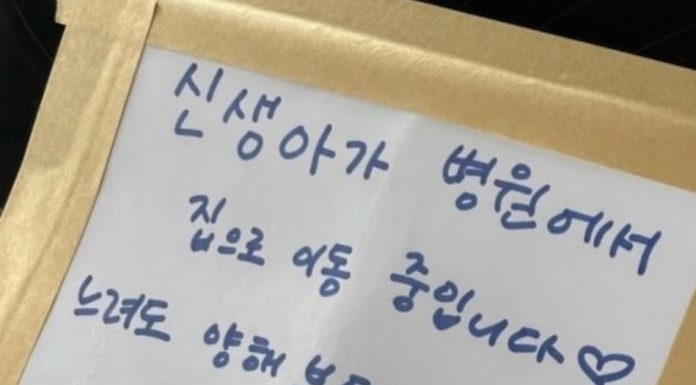 신생아가 병원에서
집으로 이동 중입니다♡
느려도 양해